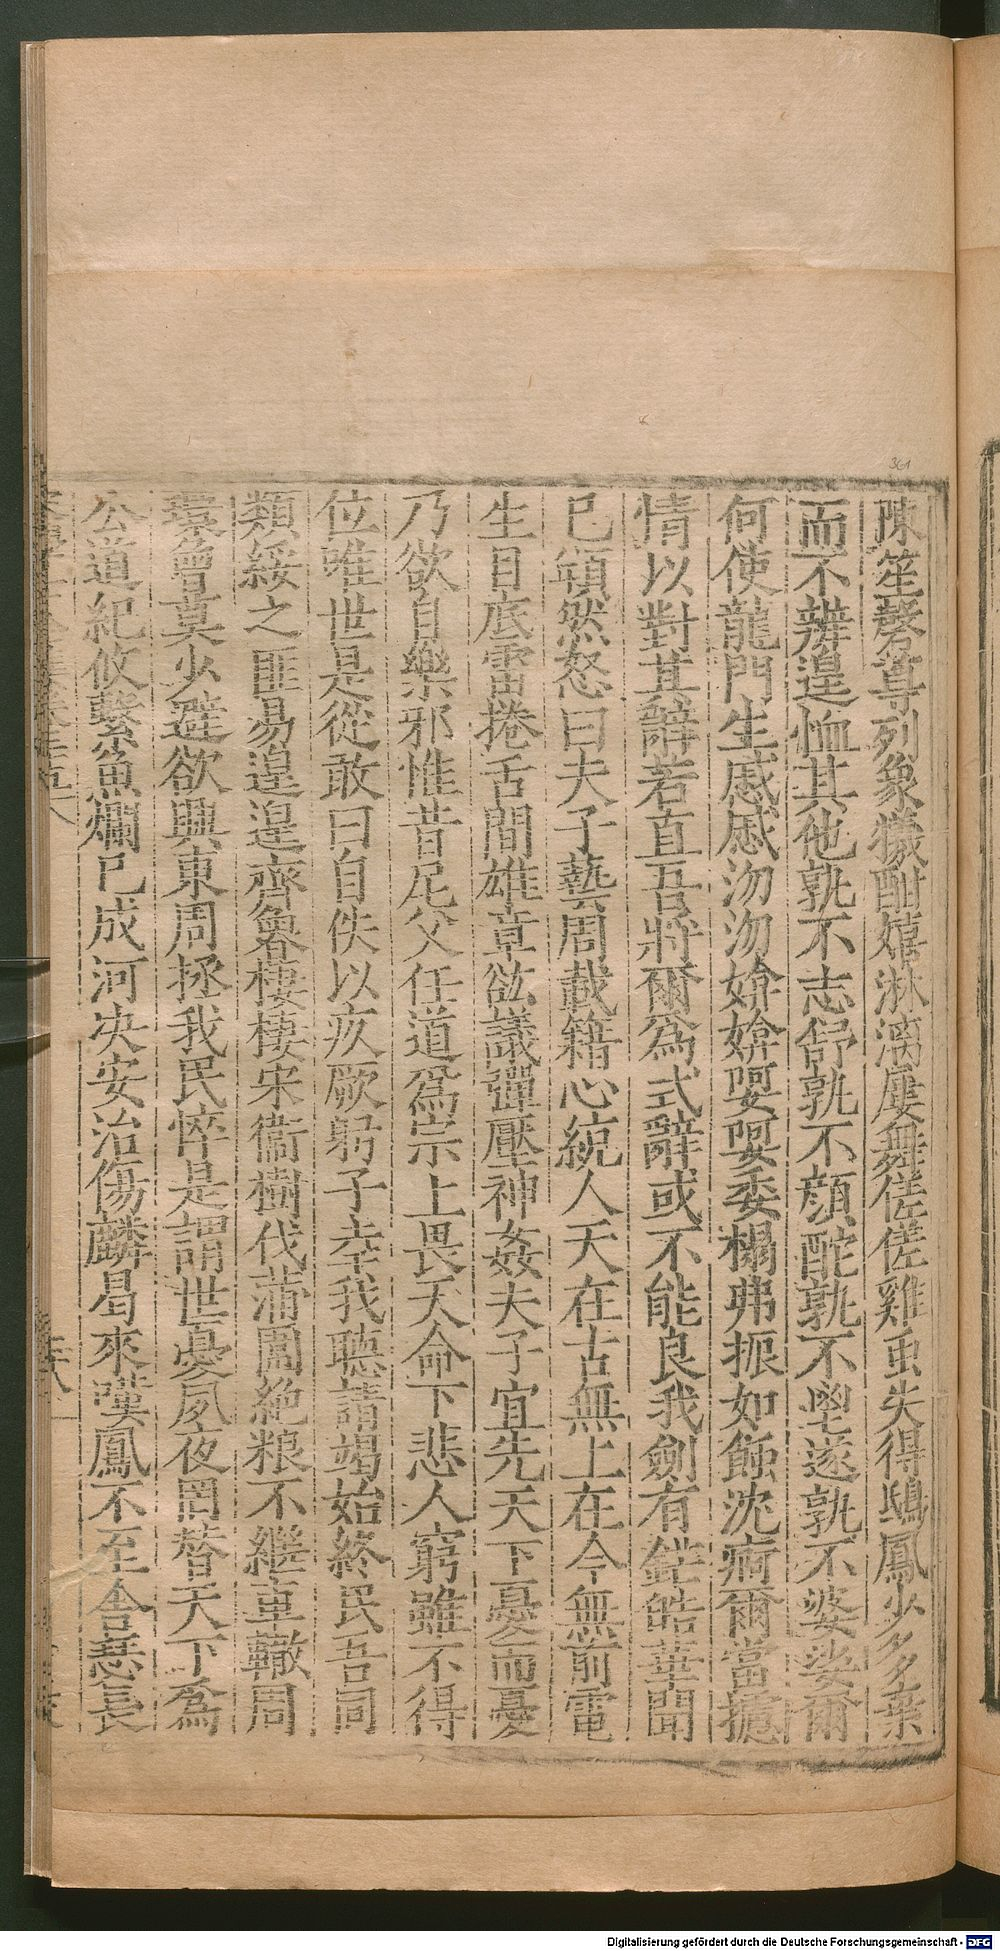 361
陳笙磬尊列象犧酣嬉淋漓屢舞傞傞雞虫失得鴟鳳少多棄
而不辨遑恤其他孰不志舒孰不顔酡孰不壆遂孰不婆娑爾
何使龍門生慼慼沕沕媕媕婴婴委榻弗振如蝕沈疴爾當攄
情以對其辭若直吾將爾爲式辭或不能良我劍有鋩皓華聞
已頩然怒曰夫子藝周載籍心統人天在古無上在今無前電
生目底雷捲舌間雄章欱議彈壓神姦夫子宜先天下憂而憂
乃欲自樂邪惟昔尼父任道爲宗上畏天命下悲人窮雖不得
位唯世是從敢曰自佚以疚厥躬子幸我聽請竭始終民吾同
類綏之匪易遑遑齊魯棲棲宋衞樹伐蒲圍絶粮不繼車轍周
環曾莫少避欲興東周拯我民悴是謂世憂夙夜罔替天下爲
公道紀攸繫魚爛已成河決安治傷麟曷來嘆鳳不至舍瑟長
Digitalisierung gefördert durch die Deutsche Forschungsgemeinschaft - DFG